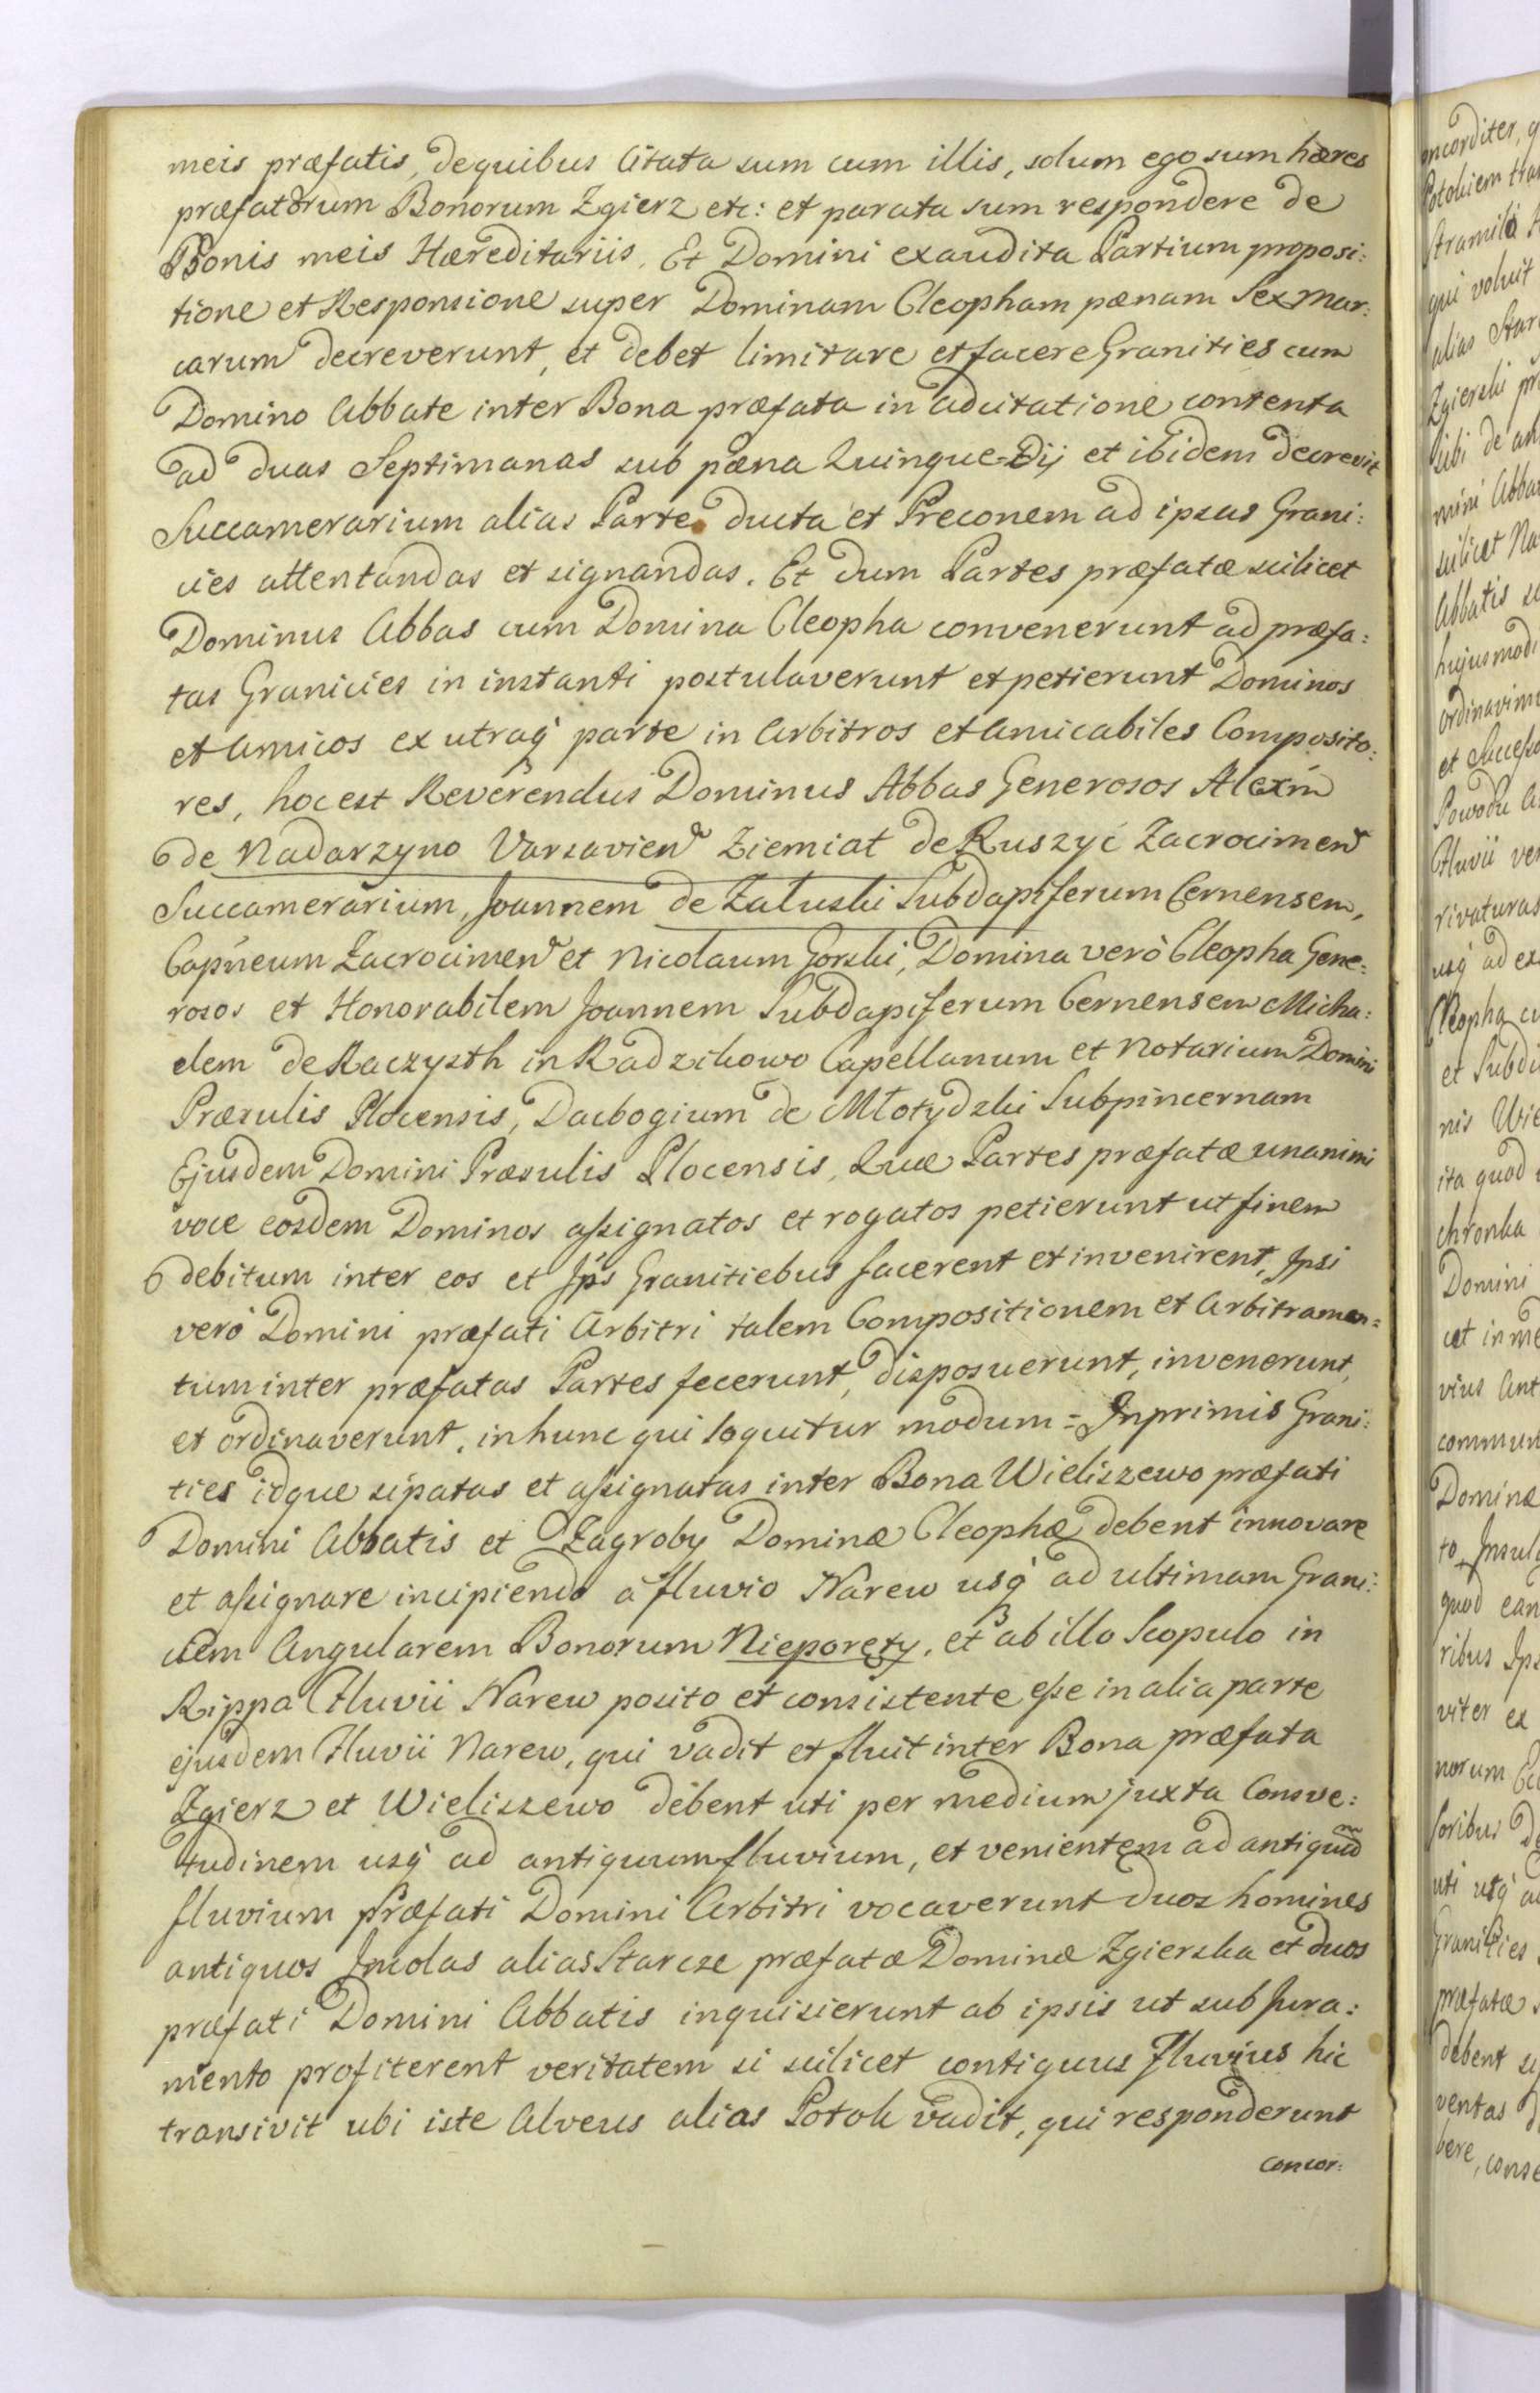 meis præfatis, de quibus Citata sum cum illis, solum ego sum hæres
præfatorum Bonorum Zgierz etc: et parata sum respondere de
Bonis meis Hæreditariis. Et Domini exaudita Partium proposi:
tione et Responsione super Dominam Cleopham pænam Sex mar:
carum decreverunt, et debet limitare et facere Granities cum
Domino Abbate inter Bona præfata in adcitatione contenta
ad duas Septimanas sub pæna Quinque=Dij et ibidem decrevit
Succamerarium alias Parte ducta et Preconem ad ipsas Grani:
cies attentandas et signandas. Et dum Partes præfatæ scilicet
Dominus Abbas cum Domina Cleopha convenerunt ad præfa:
tas Granicies in instanti postulaverunt et petierunt Dominos
et Amicos ex utraq' parte in Arbitros et Amicabiles Composito:
res, hoc est Reverendus Dominus Abbas Generosos Alexm
de Nadarzyno Varsavien Ziemiat de Ruszyć Zacrocimen
Succamerarium, Joannem de Zaluski Subdapiferum Cernensem,
Capneum Zacrocimen et Nicolaum Gorski, Domina verò Cleopha Gene:
rosos et Honorabilem Joannem Subdapiferum Cernensem Micha:
elem de Raczysth in Radzikowo Capellanum et Notarium Domini
Præsulis Plocensis, Dacbogium de Młotydzki Subpincernam
Ejusdem Domini Præsulis Plocensis, Quæ Partes præfatæ unanimi
voce eosdem Dominos assignatos et rogatos petierunt ut finem
debitum inter eos et Ips Granitiebus facerent et invenirent, Ipsi
verò Domini præfati Arbitri talem Compositionem et Arbitramen=
tum inter præfatas Partes fecerunt, disposuerunt, invenerunt,
et ordinaverunt, in hunc qui loquitur modum = Inprimis Grani:
ties idque sipatas et assignatas inter Bona Wieliszewo præfati
Domini Abbatis et Zagroby Dominæ Cleophæ debent innovare
et assignare incipiendo à fluvio Narew usq' ad ultimam Grani:
ciem Angularem Bonorum Nieporęty, et ab illo Scopulo in
Rippa Fluvii Narew posito et consistente esse in alia parte
ejusdem Fluvii Narew, qui vadit et fluit inter Bona præfata
Zgierz et Wieliszewo debent uti per medium juxta Consve:
tudinem usq' ad antiquum fluvium, et venientem ad antiquũ
fluvium Præfati Domini Arbitri vocaverunt duos homines
antiquos Incolas alias Starcze præfatæ Dominæ Zgierska et duos
præfati Domini Abbatis inquisierunt ab ipsis ut sub Jura:
mento profiterent veritatem si scilicet contiguus Fluvius hic
transivit ubi iste Alveus alias Potok vadit, qui responderunt
concor: